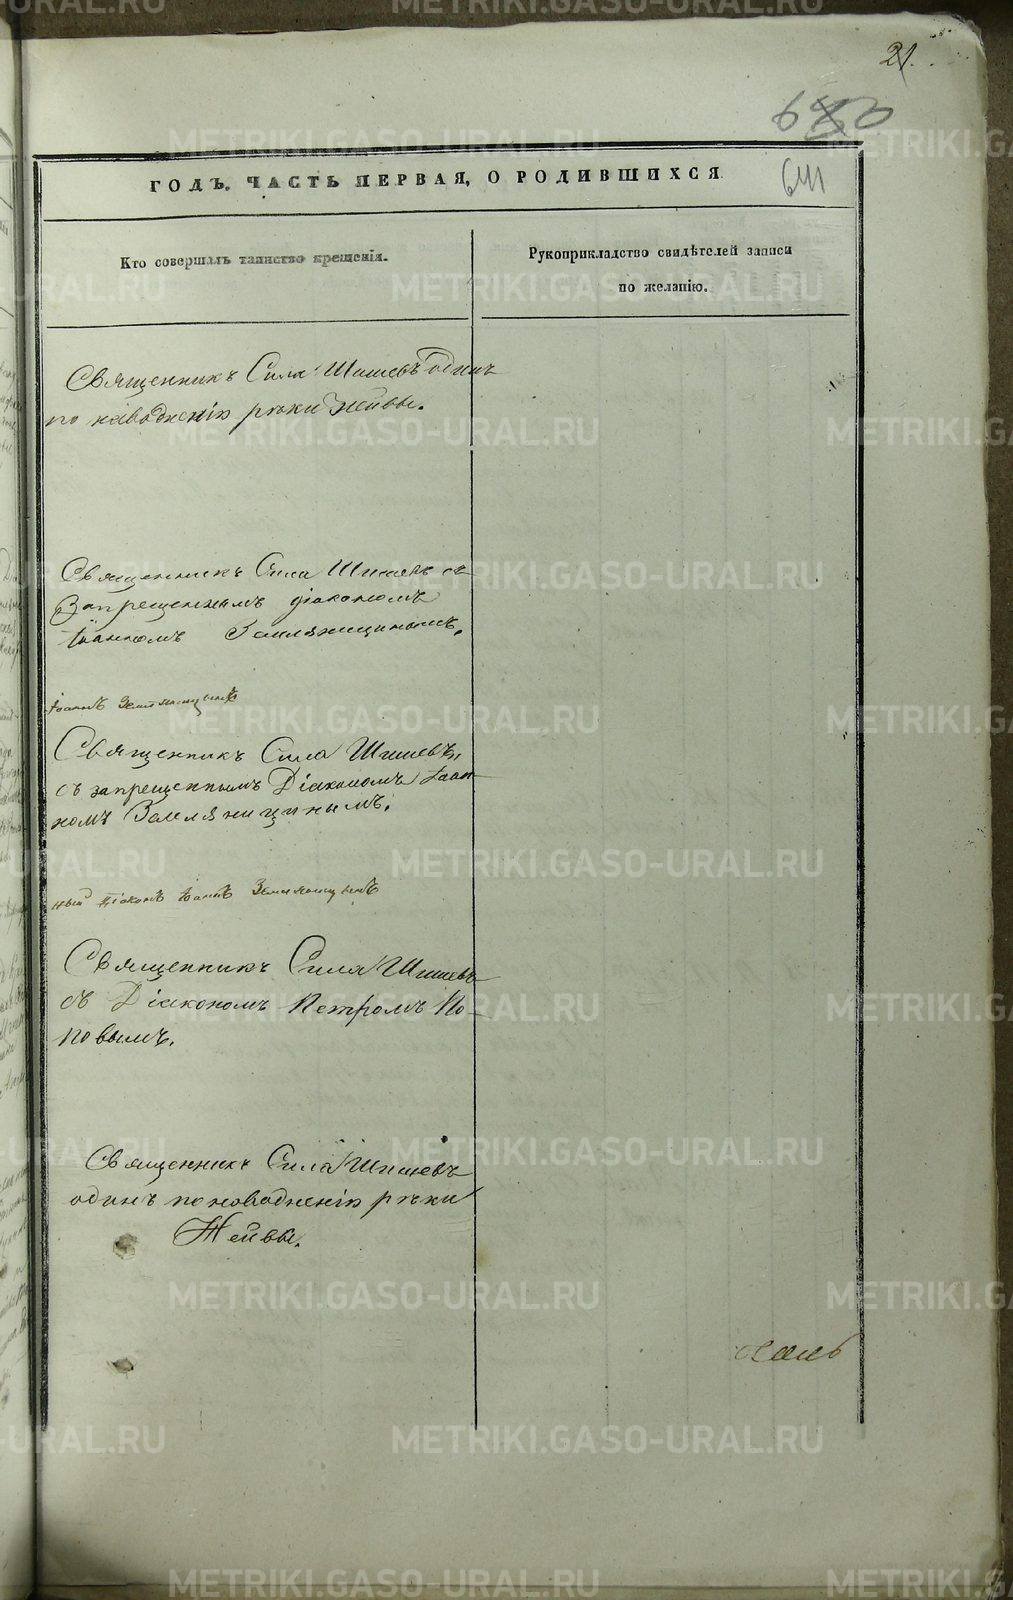 21.
680
641
ГОДЪ. ЧАСТЬ ПЕРВАЯ, О РОДИВШИХСЯ
Кто совершалъ таинство крещенія.
Рукоприкладство свидѣтелей записи
по желанію.
Священникъ Сила Шишевъ одинъ
по наводненію рѣки Нейвы.
Священникъ Сила Шишевъ съ
Запрещеннымъ діакономъ
Іоанномъ Земляницинымъ.
Іоаннъ Земляницынъ
Священникъ Сила Шишевъ,
съ запрещеннымъ Діакономъ Іоан-
номъ Земляницинымъ.
ный Діаконъ Іоаннъ Земляницынъ
Священникъ Сила Шишевъ
съ Діакономъ Петромъ По-
повымъ.
Священникъ Сила Шишевъ
одинъ по наводненію рѣки
Нейвы.
METRIKI.GASO-URAL.RU